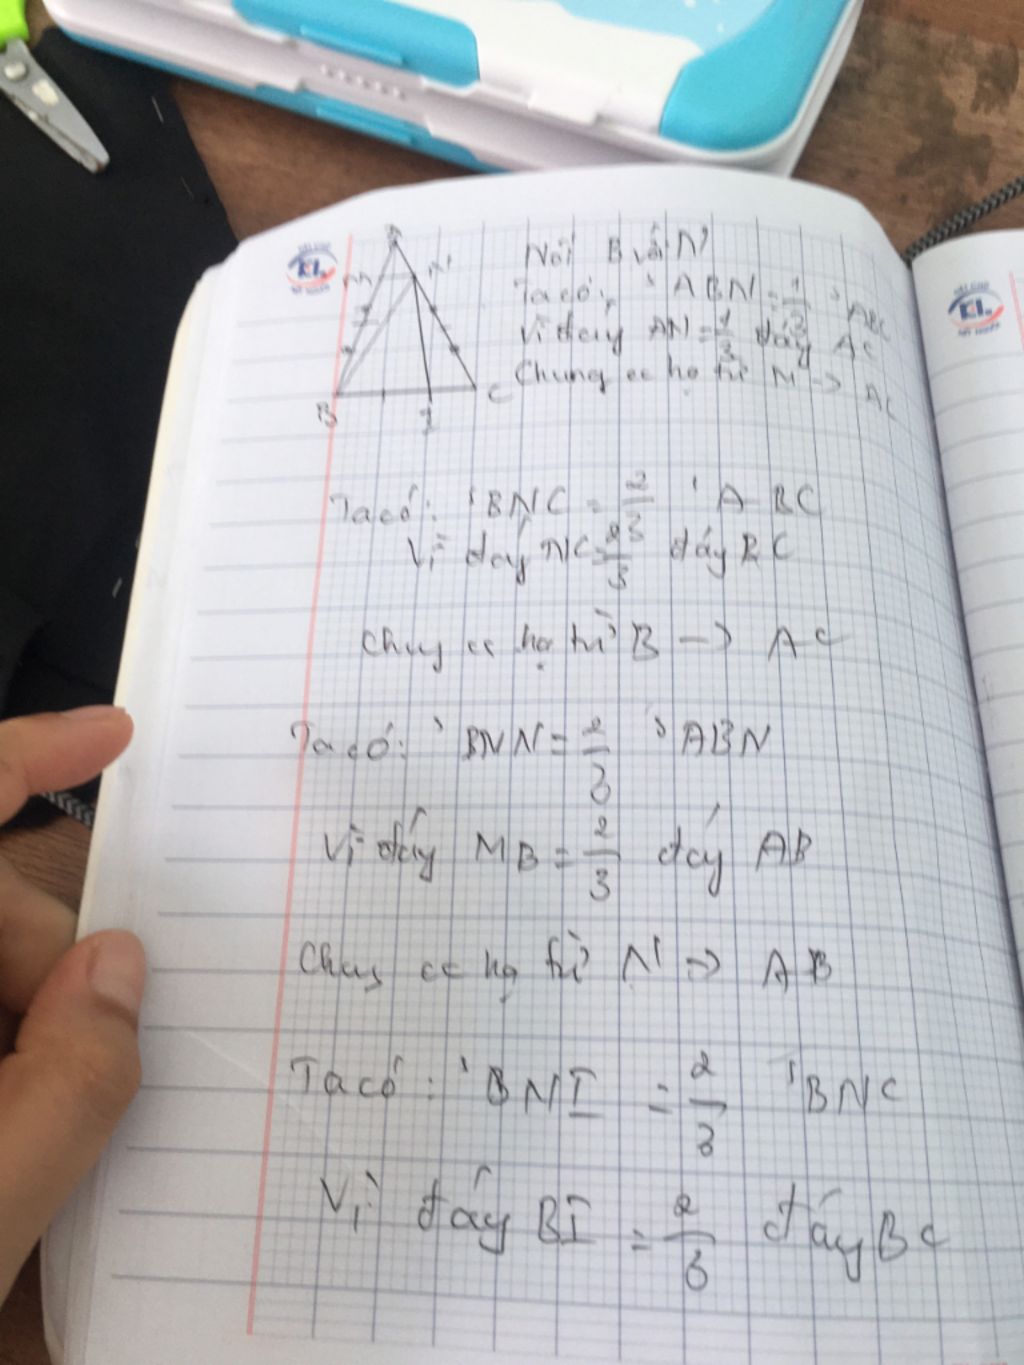 A
M
N
B
I
C
Nối B với N
Ta có: ABN = 1/3 ABC
Vì đáy AN = 1/3 đáy AC
Chung cc hạ từ M -> AC
Ta có: BNC = 2/3 ABC
Vì đáy NC = 2/3 đáy BC
Chug cc hạ từ B -> AC
Ta có: BNN = 2/3 ABN
Vì đáy MB = 2/3 đáy AB
Chug cc hạ từ N -> AB
Ta có: BNI = 2/3 BNC
Vì đáy BI = 2/3 đáy BC